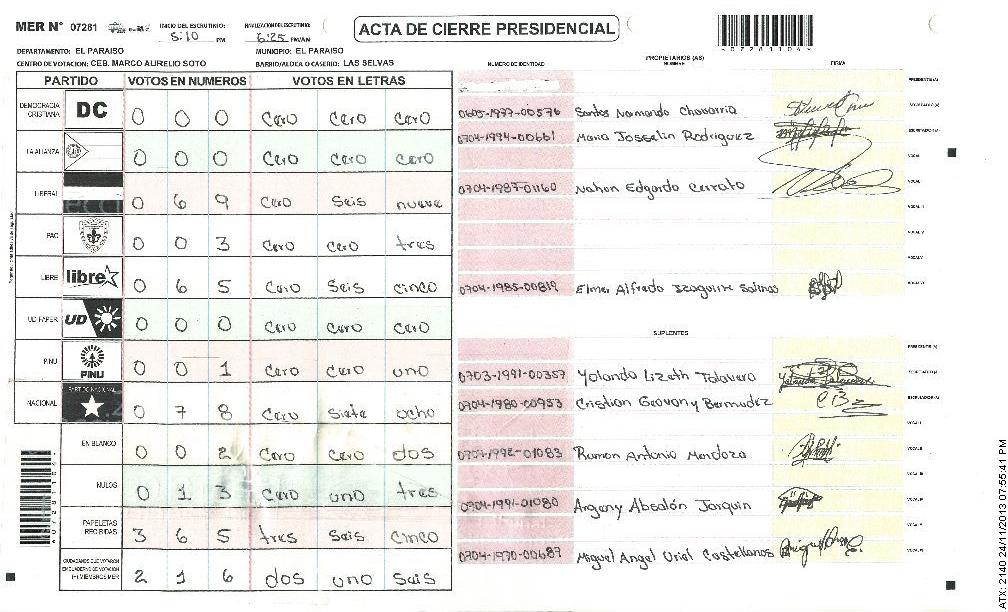 MER N° 07281 INICIO DEL ESCRUTINIO: 5:10 PM FINALIZACION DEL ESCRUTINIO: 6:25 PM/AM
ACTA DE CIERRE PRESIDENCIAL
DEPARTAMENTO: EL PARAISO MUNICIPIO: EL PARAISO
CENTRO DE VOTACION: CEB. MARCO AURELIO SOTO BARRIO/ALDEA O CASERIO: LAS SELVAS
PARTIDO VOTOS EN NUMEROS VOTOS EN LETRAS
DEMOCRACIA CRISTIANA DC 0 0 0 Cero Cero Cero
LA ALIANZA 0 0 0 Cero Cero Cero
LIBERAL 0 6 9 Cero Seis nueve
PAC 0 0 3 Cero Cero tres
LIBRE libre 0 6 5 Cero Seis cinco
UD FAPER UD 0 0 0 Cero Cero Cero
PINU PINU 0 0 1 Cero Cero uno
NACIONAL PARTIDO NACIONAL 0 7 8 Cero Siete ocho
EN BLANCO 0 0 2 Cero Cero dos
NULOS 0 1 3 Cero uno tres
PAPELETAS RECIBIDAS 3 6 5 tres Seis cinco
CIUDADANOS QUE VOTARON EN CUADERNO DE VOTACION (+) MIEMBROS MER 2 1 6 dos uno Seis
NUMERO DE IDENTIDAD PROPIETARIOS (AS) NOMBRE FIRMA
PRESIDENTE(A)
0605-1977-00576 Santos Normando Chavarria SECRETARIO(A)
0704-1994-00661 Maria Josselin Rodriguez ESCRUTADOR(A)
VOCAL I
0704-1987-01160 Nahun Edgardo Cerrato
0704-1985-00819 Elmer Alfredo Izaguirre Salinas
SUPLENTES
PRESIDENTE(A)
0703-1991-00357 Yolanda Lizeth Talavera SECRETARIO(A)
0704-1980-00953 Cristian Geovany Bermudez ESCRUTADOR(A)
VOCAL I
0704-1992-01083 Ramon Antonio Mendoza
0704-1991-01080 Argeny Absalón Joaquin
0704-1970-00687 Miguel Angel Urial Castellanos
ATX: 2140 24/11/2013 07:55:41 PM